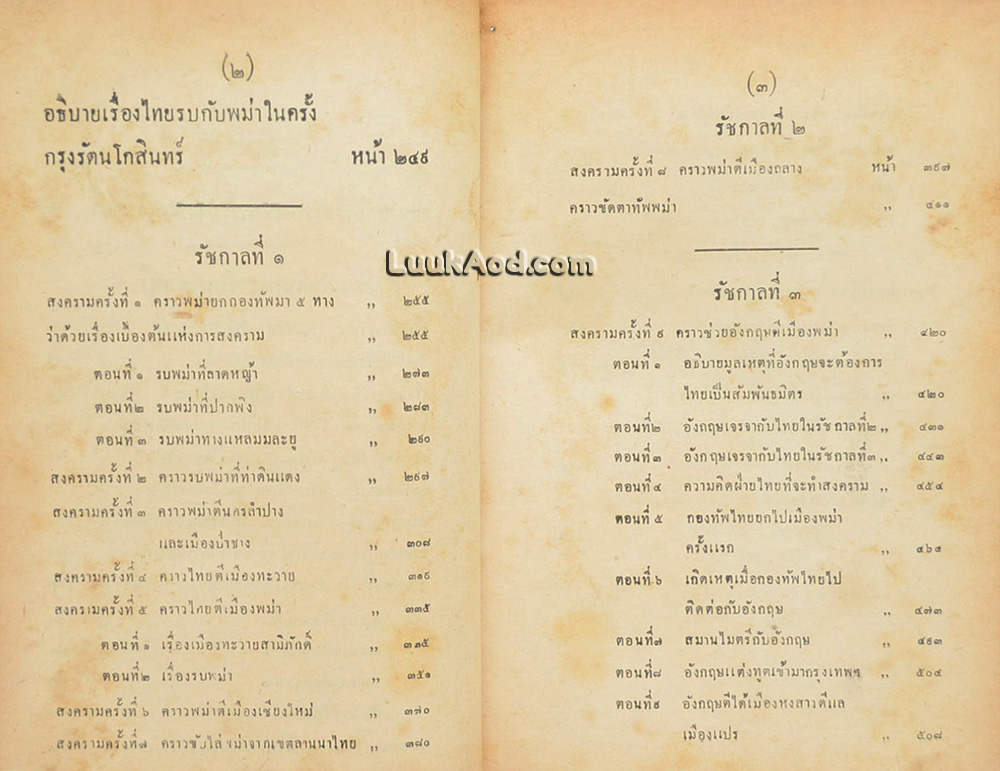 (๒)
อธิบายเรื่องไทยรบกับพม่าในครั้ง
กรุงรัตนโกสินทร์ หน้า ๒๔๙
รัชกาลที่ ๑
LuukAod.com
สงครามครั้งที่ ๑ คราวพม่ายกกองทัพมา ๕ ทาง ,, ๒๕๕
ว่าด้วยเรื่องเบื้องต้นแห่งการสงคราม ,, ๒๕๕
ตอนที่ ๑ รบพม่าที่ลาดหญ้า ,, ๒๗๓
ตอนที่๒ รบพม่าที่ปากพิง ,, ๒๘๓
ตอนที่ ๓ รบพม่าทางแหลมมละยู ,, ๒๙๐
สงครามครั้งที่ ๒ คราวรบพม่าที่ท่าดินแดง ,, ๒๙๗
สงครามครั้งที่ ๓ คราวพม่าตีนครลำปาง
และเมืองป่าซาง ,, ๓๐๘
สงครามครั้งที่ ๔ คราวไทยตีเมืองทะวาย ,, ๓๑๙
สงครามครั้งที่ ๕ คราวไทยตีเมืองพม่า ,, ๓๓๕
ตอนที่ ๑ เรื่องเมืองทะวายสามิภักดิ์ ,, ๓๓๕
ตอนที่๒ เรื่องรบพม่า ,, ๓๕๑
สงครามครั้งที่ ๖ คราวพม่าตีเมืองเชียงใหม่ ,, ๓๗๐
สงครามครั้งที่๗ คราวขับไล่พม่าจากเขตลานนาไทย ,, ๓๘๐
(๓)
รัชกาลที่ ๒
สงครามครั้งที่ ๘ คราวพม่าตีเมืองถลาง หน้า ๓๙๗
คราวขัดตาทัพพม่า ,, ๔๑๑
รัชกาลที่ ๓
สงครามครั้งที่ ๙ คราวช่วยอังกฤษตีเมืองพม่า ,, ๔๒๐
ตอนที่ ๑ อธิบายมูลเหตุที่อังกฤษจะต้องการ
ไทยเป็นสัมพันธมิตร ,, ๔๒๐
ตอนที่๒ อังกฤษเจรจากับไทยในรัชกาลที่๒ ,, ๔๓๑
ตอนที่ ๓ อังกฤษเจรจากับไทยในรัชกาลที่๓ ,, ๔๔๓
ตอนที่ ๔ ความคิดฝ่ายไทยที่จะทำสงคราม ,, ๔๕๔
ตอนที่ ๕ กองทัพไทยยกไปเมืองพม่า
ครั้งแรก ,,
ตอนที่ ๖ เกิดเหตุเมื่อกองทัพไทยไป
ติดต่อกับอังกฤษ ,, ๔๗๓
ตอนที่๗ สมานไมตรีกับอังกฤษ ,, ๔๘๓
ตอนที่๘ อังกฤษแต่งทูตเข้ามากรุงเทพฯ ,, ๕๐๔
ตอนที่๙ อังกฤษตีได้เมืองหงสาวดีแล
เมืองแปร ,, ๕๐๘